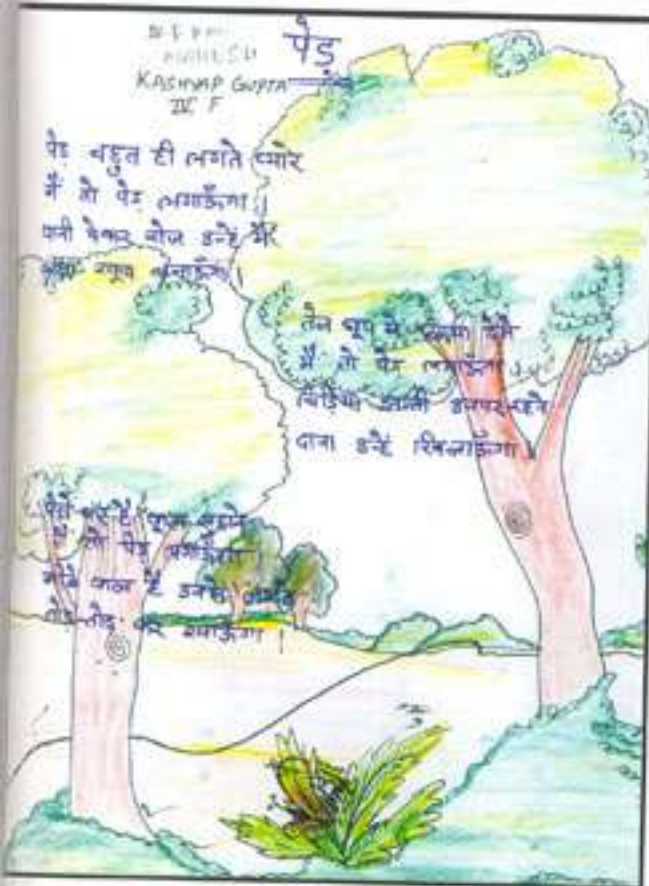 पेड़
KASHYAP GUPTA
IV F
पेड़ बहुत ही लगते प्यारे
मैं तो पेड़ लगाऊँगा।
पानी देकर रोज उन्हें मैं
तेज धूप में देते
मैं तो पेड़ लगाऊँगा।
चिड़िया आती उनपर रहने
दाना उन्हें खिलाऊँगा।
पेड़ों पर है
मैं तो पेड़ लगाऊँगा
मीठे फल है उनके
तोड़-तोड़ कर खाऊँगा।